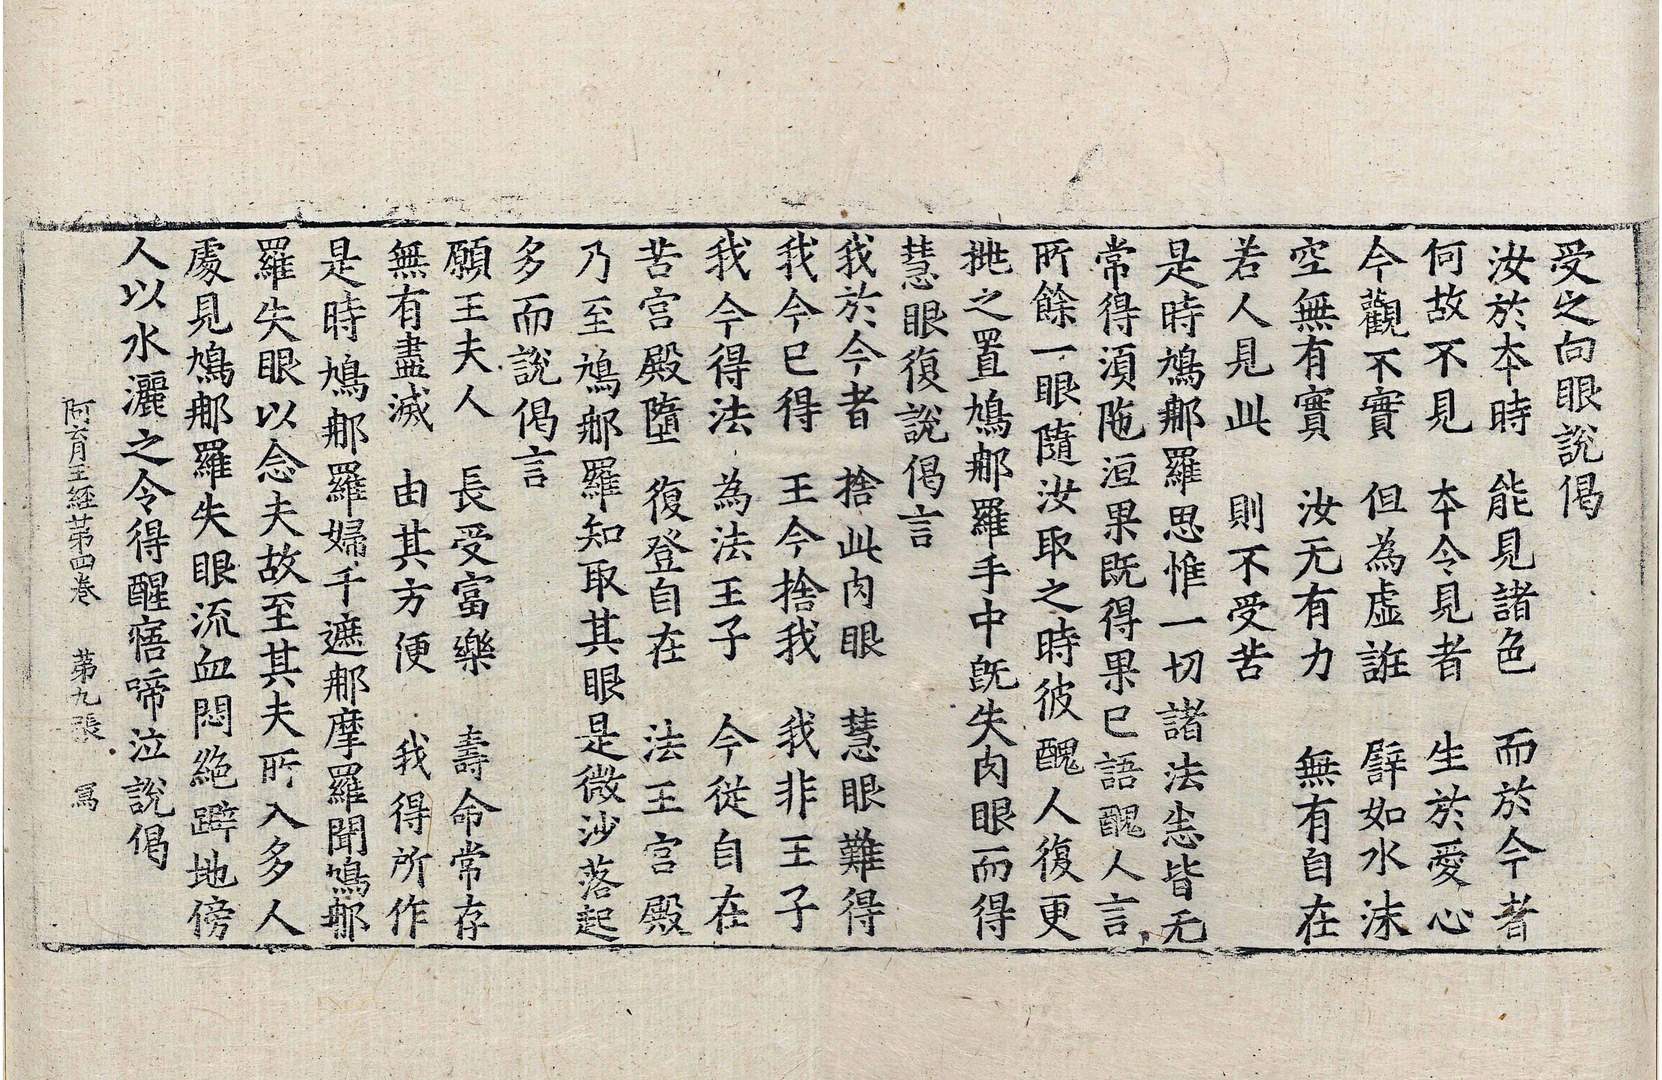 受之向眼說偈
汝於本時　能見諸色　而於今者
何故不見　本令見者　生於愛心
今觀不實　但為虛誑　譬如水沫
空無有實　汝无有力　無有自在
若人見此　則不受苦
是時鳩那羅思惟一切諸法悉皆无
常得須陁洹果既得果已語醜人言
所餘一眼隨汝取之時彼醜人復更
挑之置鳩那羅手中旣失肉眼而得
慧眼復說偈言
我於今者　捨此肉眼　慧眼難得
我今已得　王今捨我　我非王子
我今得法　為法王子　今從自在
苦宫殿墮　復登自在　法王宫殿
乃至鳩那羅知取其眼是微沙落起
多而說偈言
願王夫人　長受富樂　壽命常存
無有盡滅　由其方便　我得所作
是時鳩那羅婦千遮那摩羅聞鳩那
羅失眼以念夫故至其夫所入多人
處見鳩那羅失眼流血悶絶躃地傍
人以水灑之令得醒寤啼泣說偈
阿育王經第四卷　第九張　寫